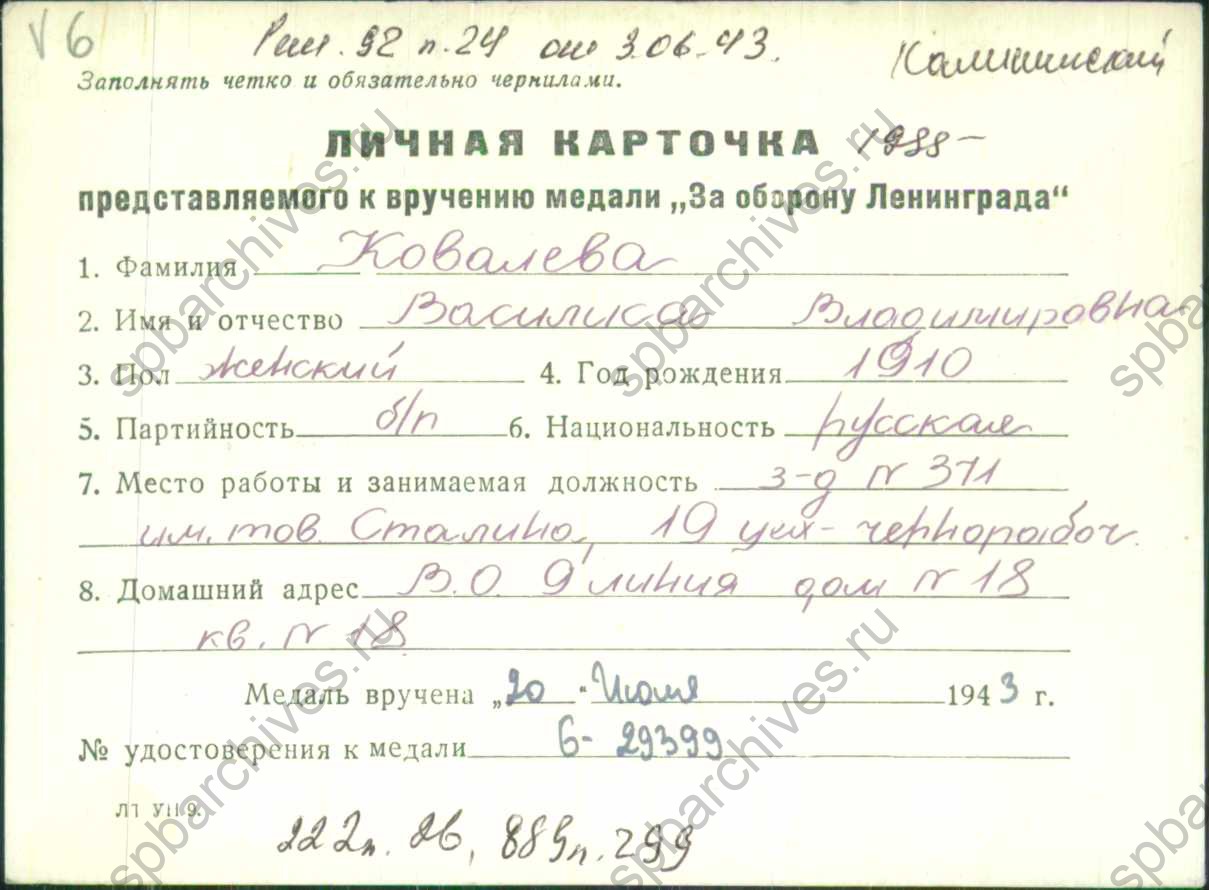 V 6
Реш. 92 п. 24 от 3.06.43.
Калининский
Заполнять четко и обязательно чернилами.
ЛИЧНАЯ КАРТОЧКА
представляемого к вручению медали „За оборону Ленинграда“
1. Фамилия Ковалева
2. Имя и отчество Василиса Владимировна
3. Пол женский 4. Год рождения 1910
5. Партийность б/п 6. Национальность русская
7. Место работы и занимаемая должность з-д N 371
им. тов. Сталина, 19 цех - чернорабоч.
8. Домашний адрес В.О. 9 линия дом N 18
кв. N 18
Медаль вручена „20“ Июля 1943 г.
№ удостоверения к медали 6- 29399
222л. 26, 889л. 299
spbarchives.ru